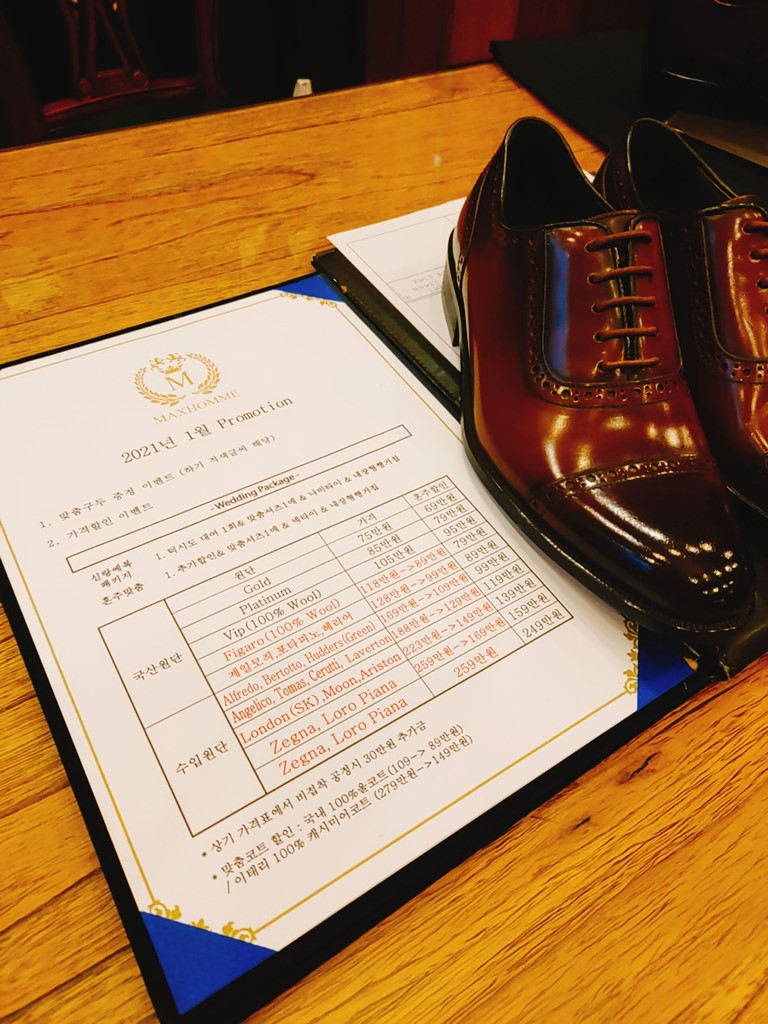 M
MAXHOMME
2021년 1월 Promotion
1. 맞춤구두 증정 이벤트 (하기 적색글씨 해당)
2. 가격할인 이벤트
-Wedding Package-
신랑예복 패키지 1. 턱시도 대여 1회& 맞춤셔츠1매 & 나비타이 & 내장형행거집
혼주맞춤 1. 추가할인& 맞춤셔츠1매 & 넥타이 & 내장형행거집
원단 가격 혼주할인
국산원단
Gold 75만원 69만원
Platinum 85만원 79만원
Vip(100% Wool) 105만원 95만원
Figaro(100% Wool) 118만원->89만원 79만원
제일모직,포타피노,헤리어 128만원->99만원 89만원
Alfredo, Bertotto, Hudders(Green) 169만원->109만원 99만원
수입원단
Angelico, Tomas, Cerutti, Laverton 188만원->129만원 119만원
London(SK),Moon,Ariston 223만원->149만원 139만원
Zegna, Loro Piana 259만원->169만원 159만원
Zegna, Loro Piana 259만원 249만원
* 상기 가격표에서 비접착 공정시 30만원 추가금
* 맞춤코트 할인 : 국내 100%울코트(109-> 89만원)
/ 이태리 100% 캐시미어코트 (279만원->149만원)